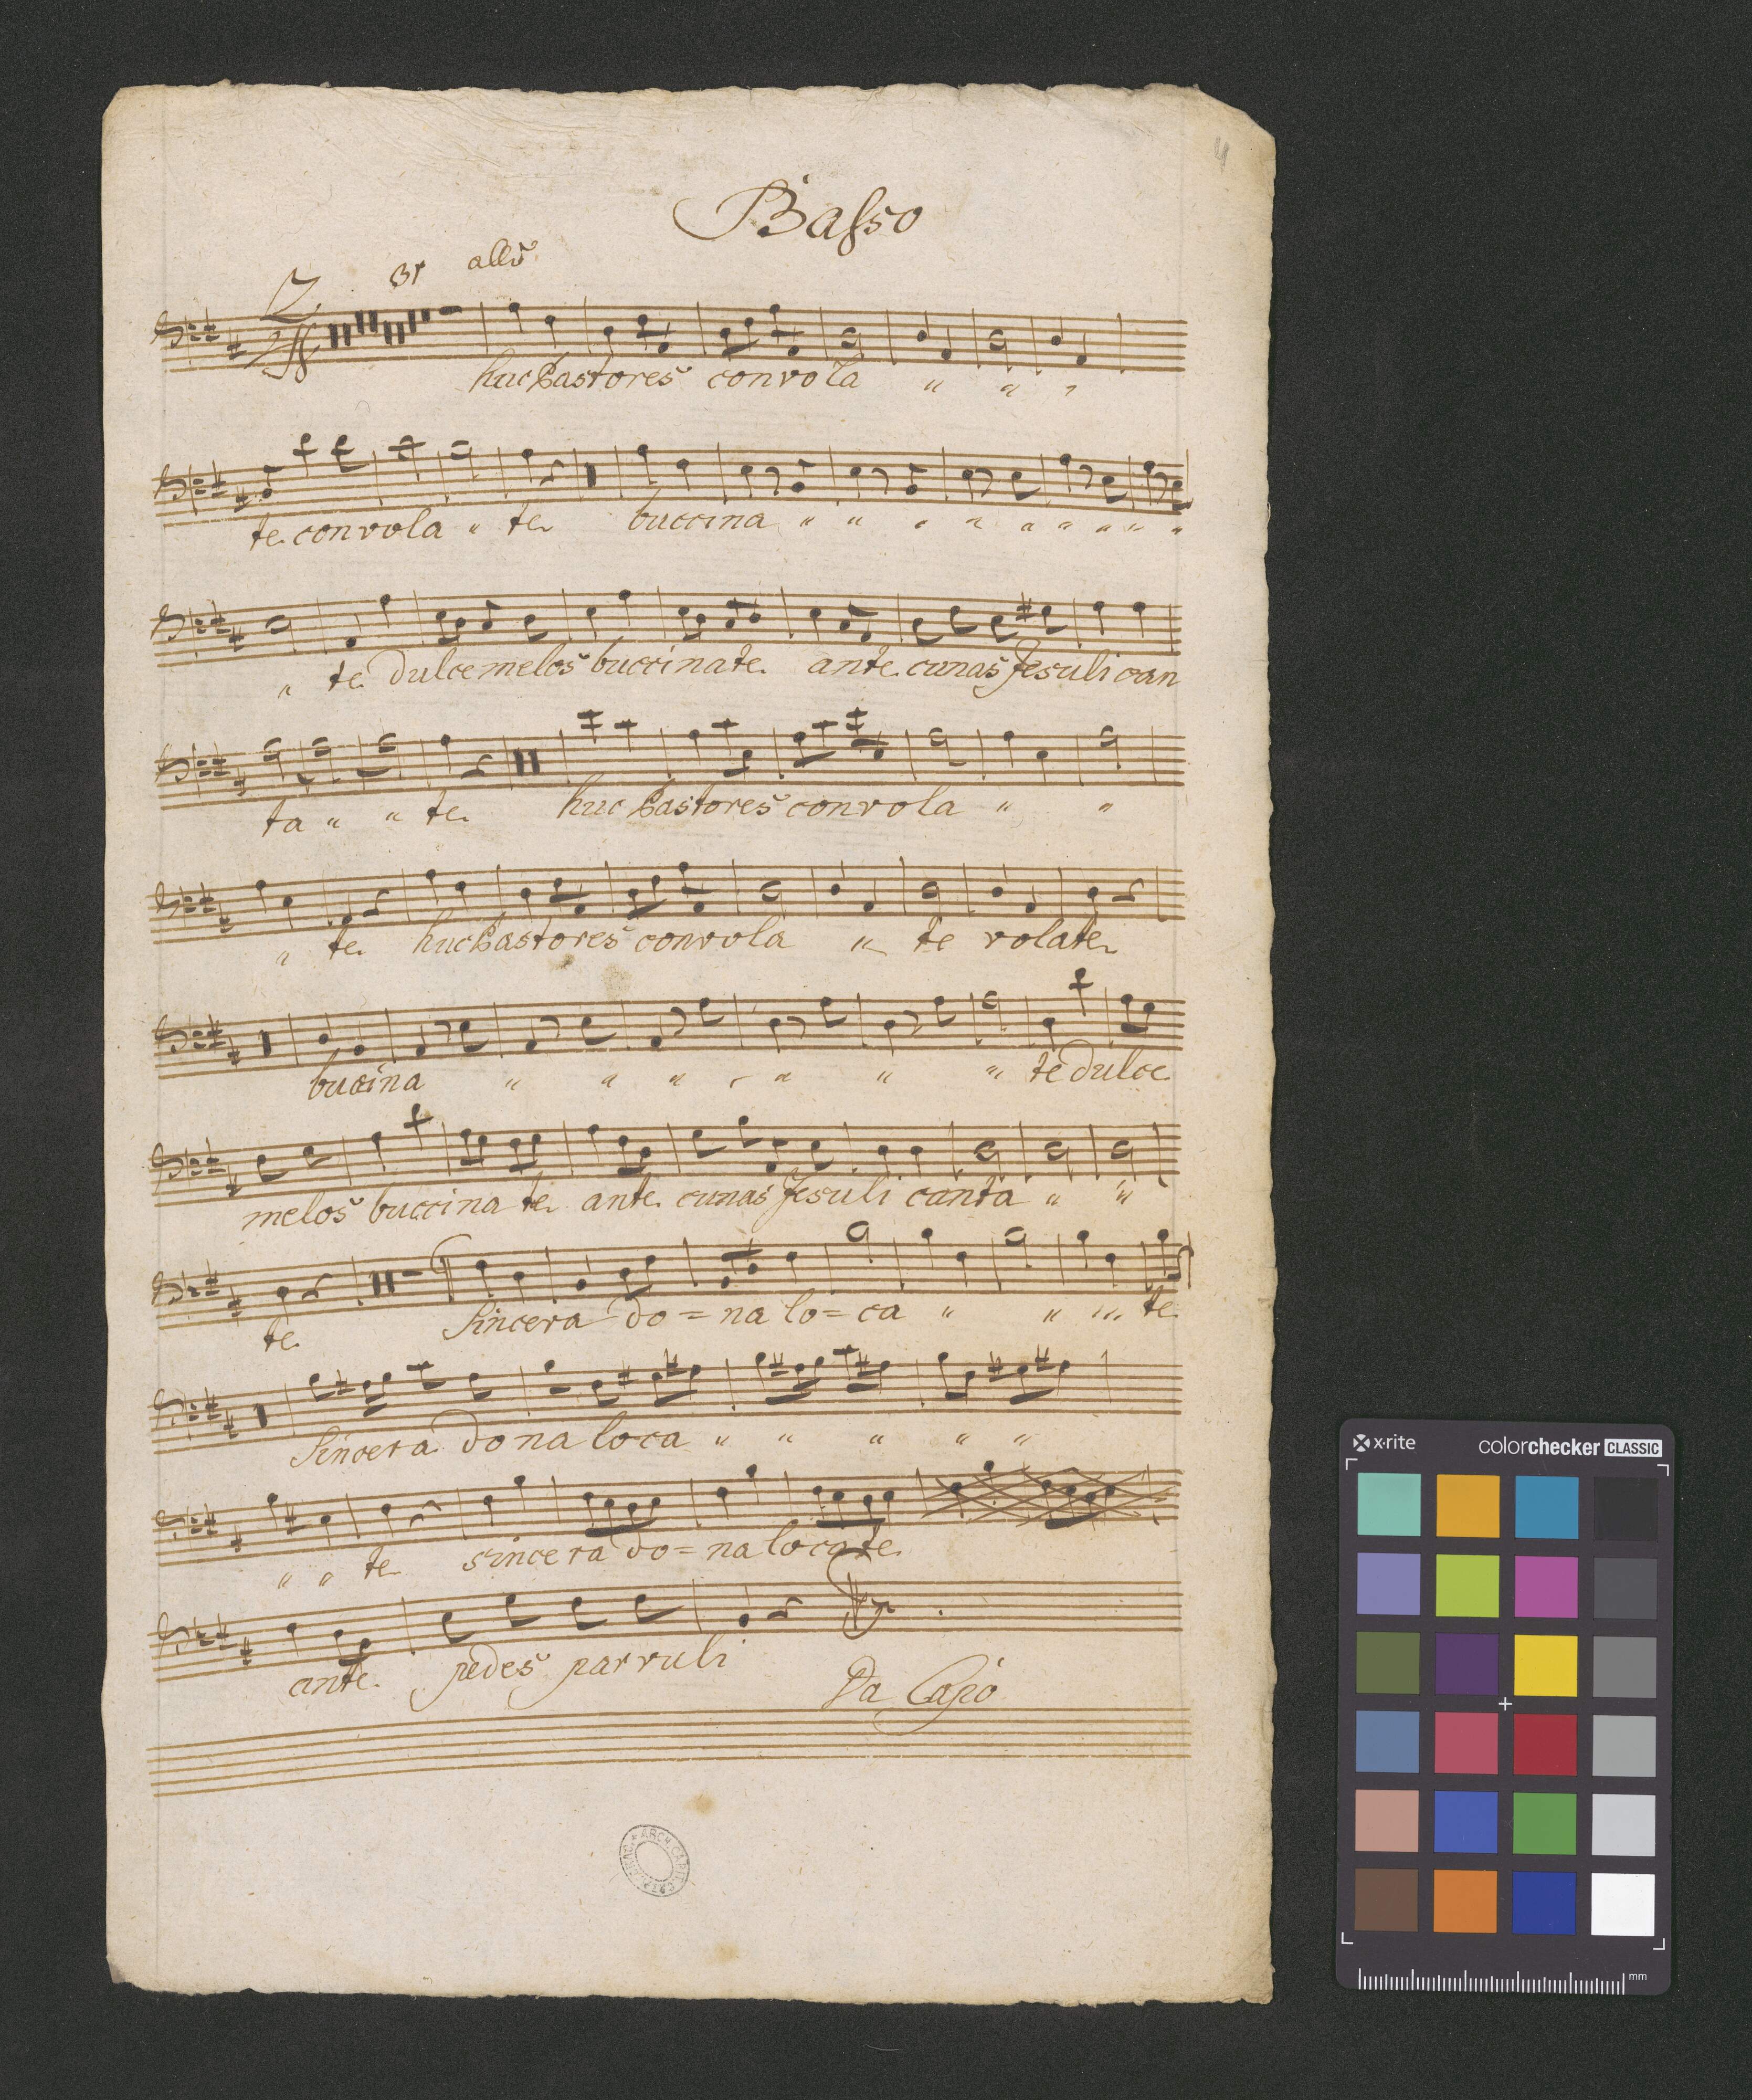 4
Basso
31 allo
huc Pastores convola " " "
te convola " te buccina " " " " " " " " "
" te dulce melos buccinate ante cunas Jesuli can
ta " " te huc Pastores convola " "
" te huc Pastores convola " te volate
bucina " " " " " " " te dulce
melos buccina te ante cunas Jesuli canta " "
te Sincera do = na lo = ca " " " te
Sincera dona loca " " " " "
" " te sincera do = na locate
ante pedes parvuli Da Capo
x·rite colorchecker CLASSIC
mm